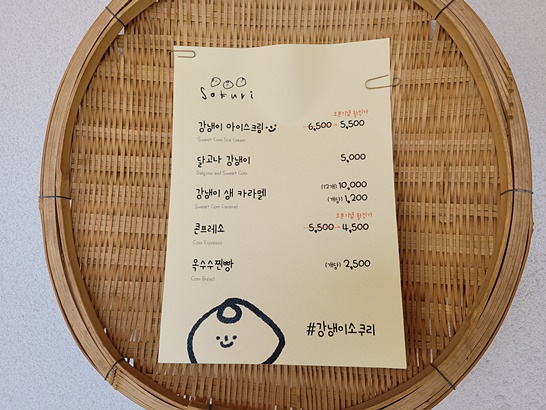 Sokuri
오픈기념 할인가
강냉이 아이스크림 6,500 → 5,500
Sweet Corn Ice Cream
달고나 강냉이 5,000
Dalgona and Sweet Corn
강냉이 생 카라멜 (12개) 10,000
(개당) 1,200
Sweet Corn Caramel
오픈기념 할인가
콘프레소 5,500 → 4,500
Corn Espresso
옥수수찐빵 (개당) 2,500
Corn Bread
#강냉이소쿠리